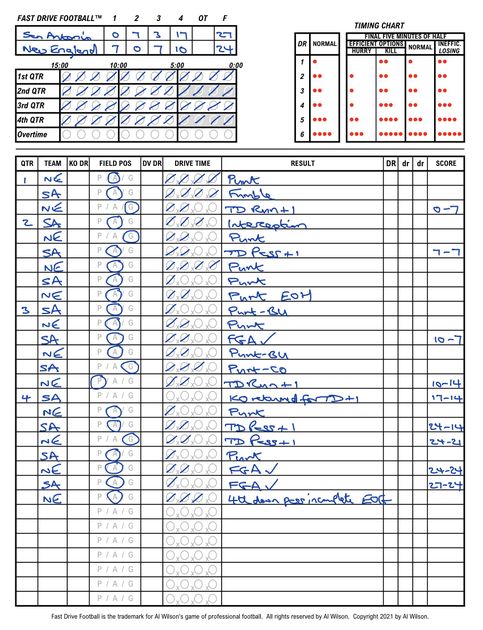 FAST DRIVE FOOTBALL™ 1 2 3 4 OT F
San Antonio 0 7 3 17 27
New England 7 0 7 10 24
15:00 10:00 5:00 0:00
1st QTR
2nd QTR
3rd QTR
4th QTR
Overtime
TIMING CHART
FINAL FIVE MINUTES OF HALF
DR NORMAL EFFICIENT OPTIONS NORMAL INEFFIC.
HURRY KILL LOSING
1
2
3
4
5
6
QTR TEAM KO DR FIELD POS DV DR DRIVE TIME RESULT DR dr dr SCORE
1 NE P A G Punt
SA P A G Fumble
NE P / A / G TD Run+1 0-7
2 SA P A G Interception
NE P / A / G Punt
SA P A G TD Pass+1 7-7
NE P A G Punt
SA P A G Punt
NE P A G Punt EOH
3 SA P A G Punt-BU
NE P A G Punt
SA P A G FGA ✓ 10-7
NE P A G Punt-BU
SA P / A G Punt-CO
NE P / A / G TD Run+1 10-14
4 SA P / A / G KO returned for TD+1 17-14
NE P A G Punt
SA P A G TD Pass+1 24-14
NE P / A / G TD Pass+1 24-21
SA P A G Punt
NE P A G FGA ✓ 24-24
SA P A G FGA ✓ 27-24
NE P A G 4th down pass incomplete EOG
P / A / G
P / A / G
P / A / G
P / A / G
P / A / G
P / A / G
P / A / G
Fast Drive Football is the trademark for Al Wilson's game of professional football. All rights reserved by Al Wilson. Copyright 2021 by Al Wilson.